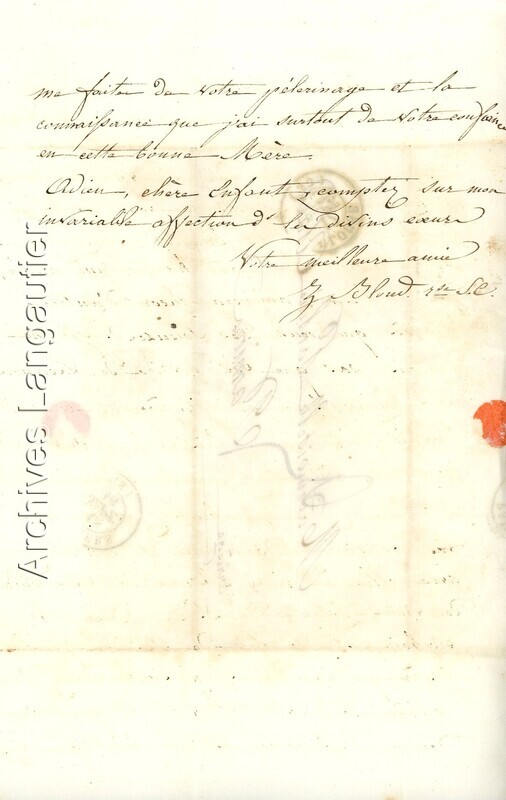 me faites de votre pélerinage et la
connaissance que j'ai surtout de votre confiance
en cette bonne Mère.
Adieu, chère Enfant, comptez sur mon
invariable affection ds les divins cœurs
Votre meilleure amie
Z Bloud. rse S.C.
Archives Langautier